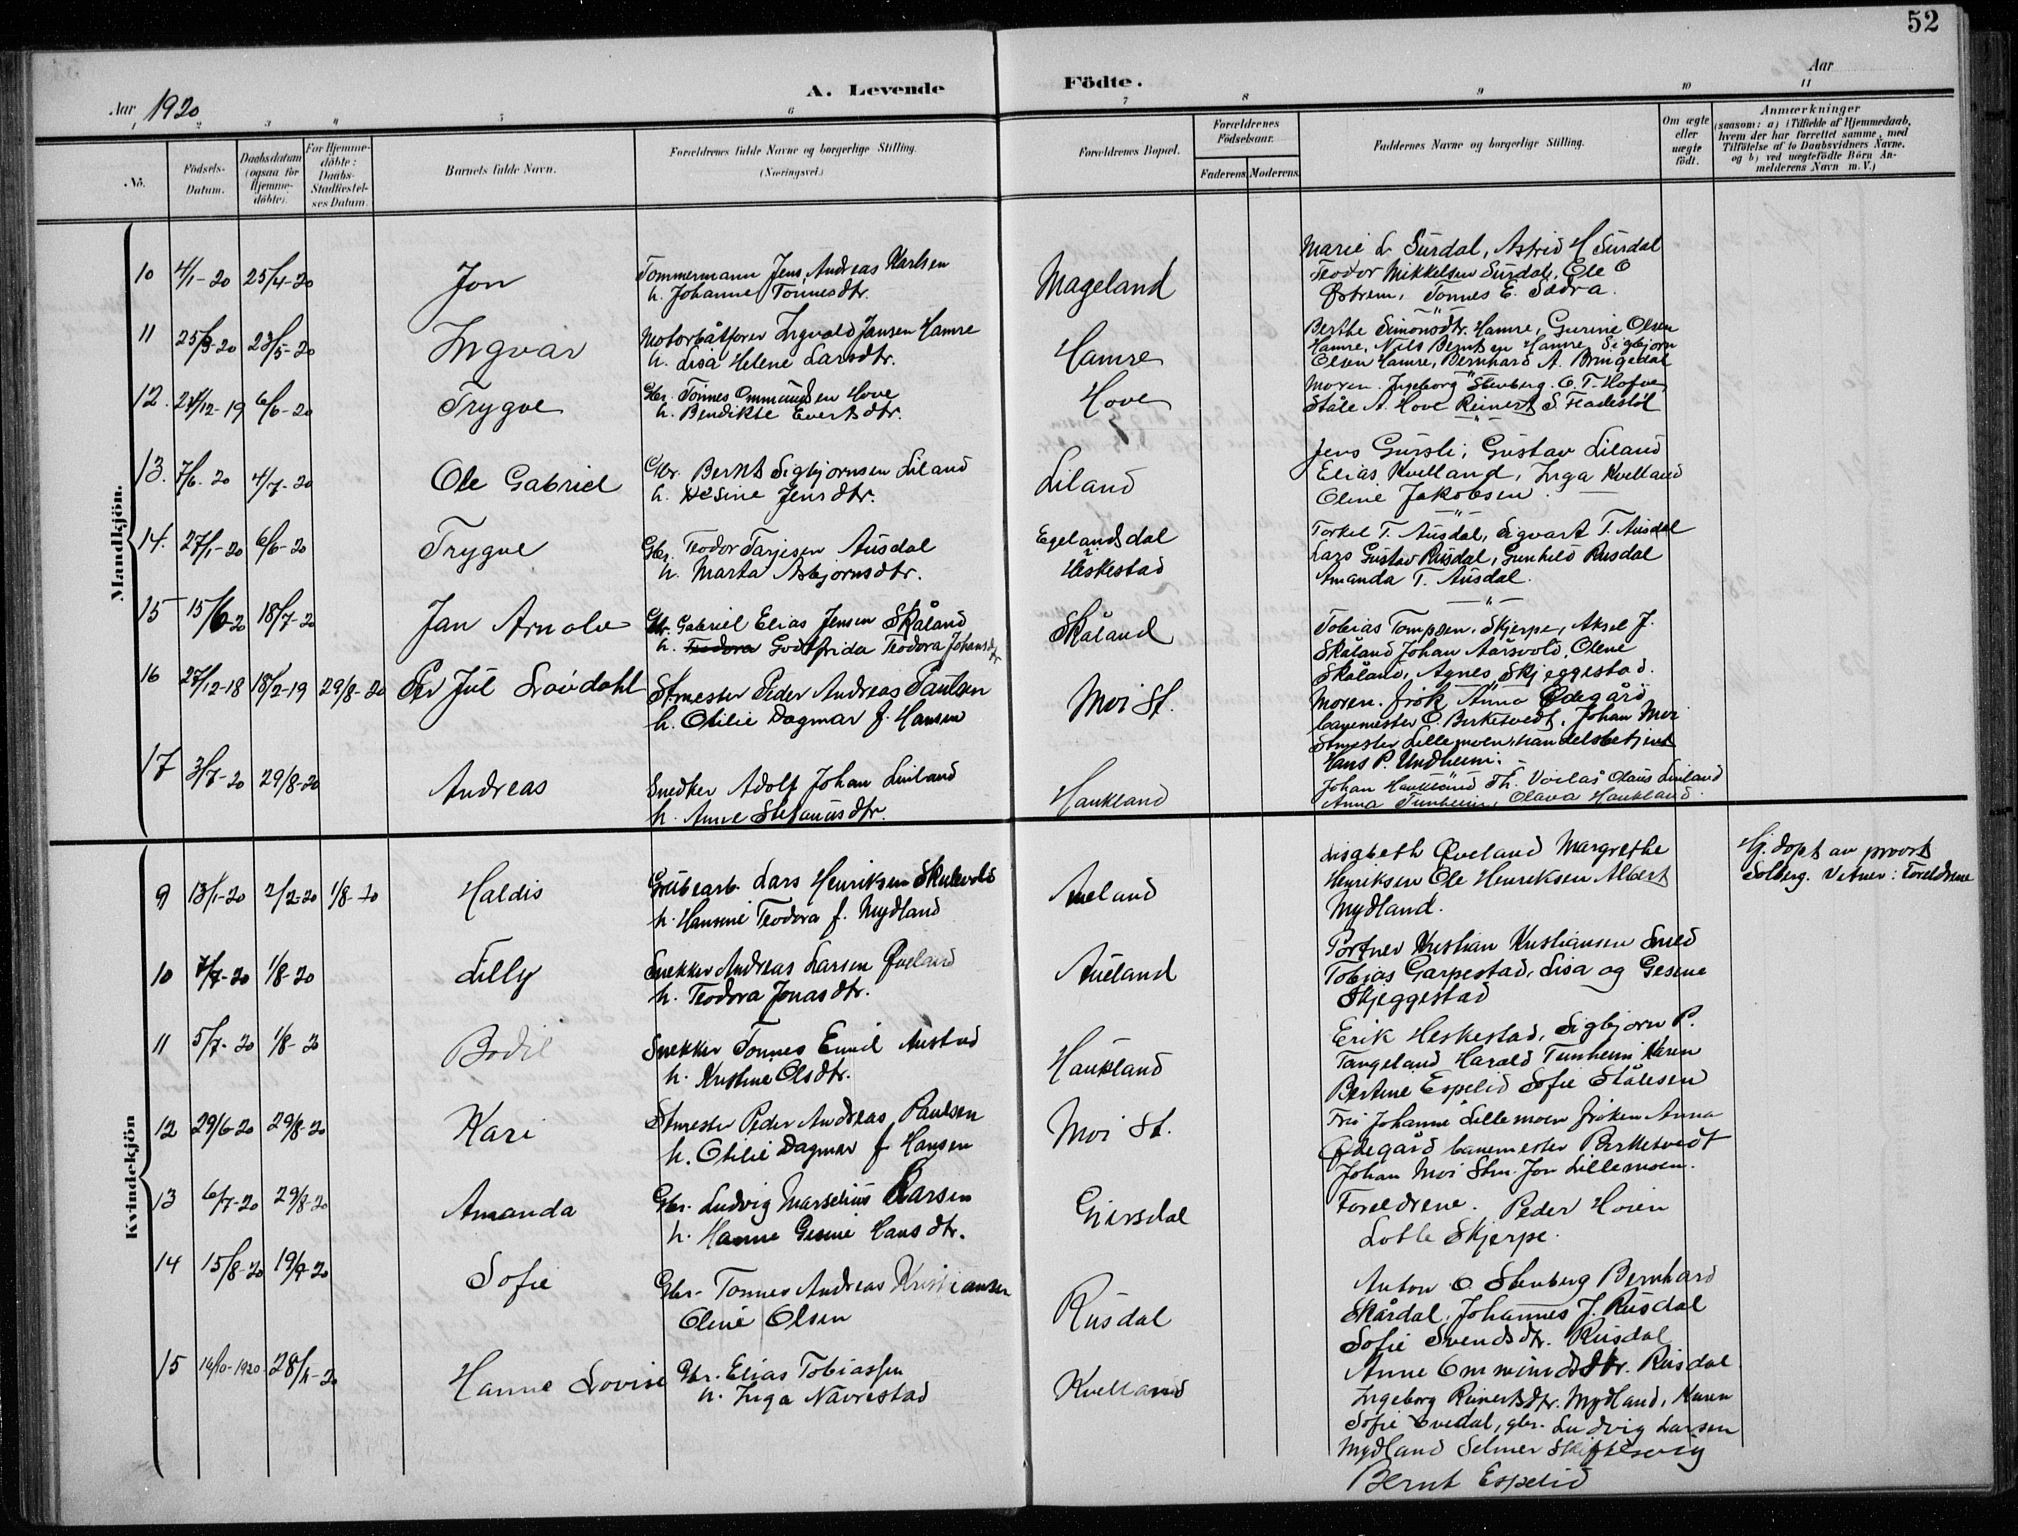 52
A. Levende Födte.
Aar 1920
Aar
1 2 3 4 5 6 7 8 9 10 11
No.
Födsels-Datum.
Daabsdatum (ogsaa for Hjemmedöbte).
For Hjemmedöbte: Daabs-Stadfæstelses Datum.
Barnets fulde Navn.
Forældrenes fulde Navne og borgerlige Stilling. (Næringsvei.)
Forældrenes Bopæl.
Forældrenes Födselsaar.
Faderens. Moderens.
Faddernes Navne og borgerlige Stilling.
Om ægte eller uægte født.
Anmærkninger
(saasom: a) i Tilfælde af Hjemmedaab, hvem der har forrettet samme, med Tilföielse af to Daabsvidners Navne, og b) ved uægtefödte Börn Anmelderens Navn m. V.)
Mandkjön.
10 4/1-20 25/4-20 Jon
Tømmermann Jens Andreas Karlsen
h. Johanne Tönnesdtr.
Mageland
Marie L Surdal, Astrid H Surdal
Teodor Mikkelsen Surdal, Ole O
Østrem, Tønnes E. Sædra.
11 25/3-20 23/5-20 Ingvar
Motorbåtfører Ingvald Jansen Hamre
h. Lisa Helene Larsdtr.
Hamre
Berthe Simonsdtr. Hamre, Gurine Olsen
Hamre, Nils Berntsen Hamre Sigbjørn
Olsen Hamre, Bernhard A. Bringedal
12. 21/12-19 6/6-20 Trygve
Gbr. Tönnes Ommundsen Hove
h. Bendikte Evertsdtr.
Hove
Moren. Ingeborg Stenberg. O. T. Hofve
Ståle A. Hove Reinert S. Fladestöl
13. 7/6-20 4/7-20 Ole Gabriel
Gbr. Bernt Sigbjørnsen Liland
h. Hesine Jensdtr.
Liland
Jens Gursli, Gustav Liland
Elias Kvelland, Inga Kvelland
Oline Jakobsen
14. 27/1-20 6/6-20 Trygve
Gbr. Teodor Tarjesen Ausdal
h. Marta Asbjørnsdtr.
Egelandsdal
Heskestad
Torkel T. Ausdal, Sigvart T. Ausdal
Lars Gustav Rusdal, Gunhild Rusdal
Amanda T. Ausdal.
15 15/6-20 18/7-20 Jan Arnolv
Gbr. Gabriel Elias Jensen Skåland
h. Teodora Godtfrida Teodora Johansdtr
Skåland
Tobias Tompsen Skjerpe, Aksel J.
Skåland Johan Aarsvold, Olene
Skåland, Agnes Skjeggestad.
16 27/12-18 18/2-19 29/8-20 Per Jul Lravdahl
Stmester Peder Andreas Paulsen
h. Otilie Dagmar f. Hansen
Moi St.
Moren. frøk Anna Ødegård
banemester O. Birketvedt, Johan Moi
Stmester Lillemoen, handelsbetjent
Hans P. Undheim.
17 3/7-20 29/8-20 Andreas
Snedker Adolf Johan Linland
h. Anne Stefanusdtr.
Haukland
Johan Haukland Th. Voilås Olaus Linland
Anna Tunheim, Olava Haukland.
Kvindekjön
9 13/1-20 2/2-20 1/8-20 Haldis
Grubearb. Lars Henriksen Skulevold
h. Hansine Teodora f. Mydland
Aueland
Lisabeth Øveland Margrethe
Henriksen Ole Henriksen Albert
Mydland.
Hj. døpt av prost
Solberg. Vitner: Foreldrene
10 7/7-20 1/8-20 Lilly
Snekker Andreas Larsen Øveland
h. Teodora Jonasdtr.
Aueland
Portner Kristian Kristiansen Smed
Tobias Garpestad, Lisa og Gesine
Skjeggestad
11 5/7-20 1/8-20 Bodil
Snekker Tonnes Emil Austad
h. Kristine Olsdtr.
Haukland
Erik Heskestad, Sigbjørn P.
Tangeland Harald Tunheim Karen
Bertine Espelid Sofie Stålesen
12 29/6-20 29/8-20 Kari
Stmester Peder Andreas Paulsen
h. Otilie Dagmar f Hansen
Moi St.
Fru Johanne Lillemoen frøken Anna
Ødegård banemester Birketvedt
Johan Moi Stm. Jon Lillemoen.
13 6/7-20 29/8-20 Amanda
Gbr. Ludvig Marselius Larsen
h. Hanne Gesine Hansdtr.
Girsdal
Foreldrene. Peder Hoien
Lotte Skjerpe.
14 15/8-20 19/9-20 Sofie
Gbr. Tonnes Andreas Kristiansen
Oline Olsen
Rusdal
Anton O. Stenberg Bernhard
Skårdal, Johannes J. Rusdal
Sofie Svendsdtr. Rusdal
Anne Ommundsdtr. Rusdal.
15 14/10-1920 28/11-20 Hanne Lovise
Gbr. Elias Tobiassen
h. Inga Navrestad
Kvelland
Ingeborg Reinertsdtr. Mydland, Karen
Sofie Evedal, gbr. Ludvig Larsen
Mydland Selmer Skiftesvig
Bernt Espelid